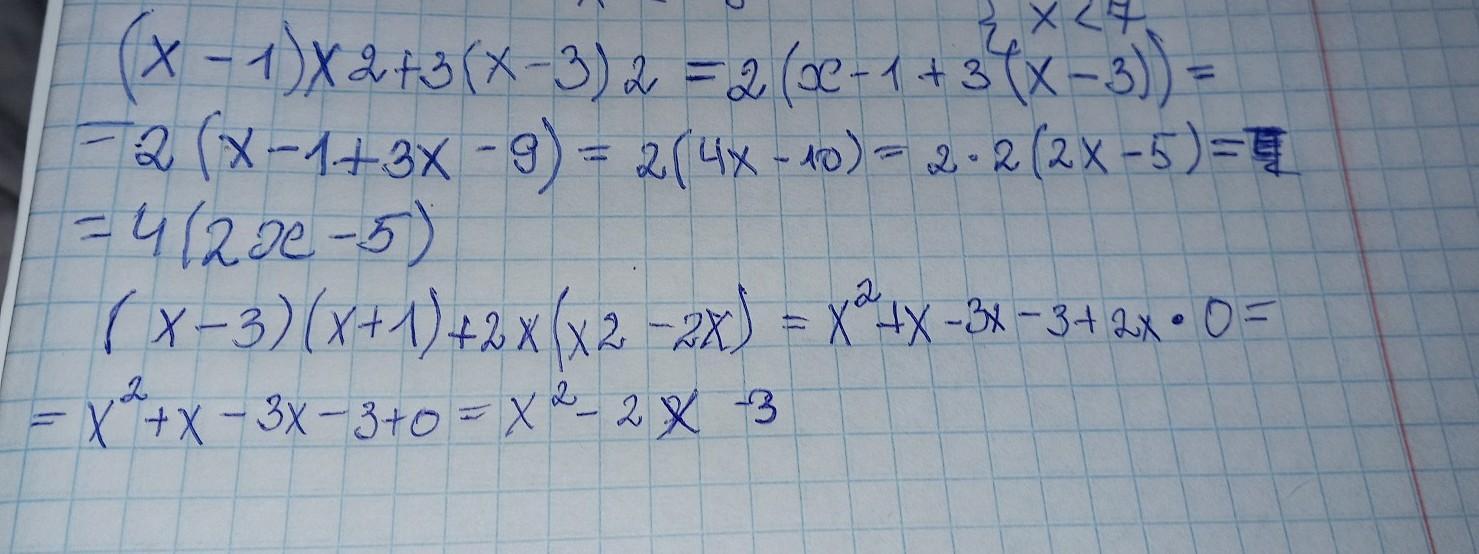 { x < 7
(x - 1) x 2 + 3(x - 3) 2 = 2(x - 1 + 3(x - 3)) =
= 2(x - 1 + 3x - 9) = 2(4x - 10) = 2 · 2(2x - 5) =
= 4(2x - 5)
(x - 3)(x + 1) + 2x(x2 - 2x) = x² + x - 3x - 3 + 2x · 0 =
= x² + x - 3x - 3 + 0 = x² - 2x - 3